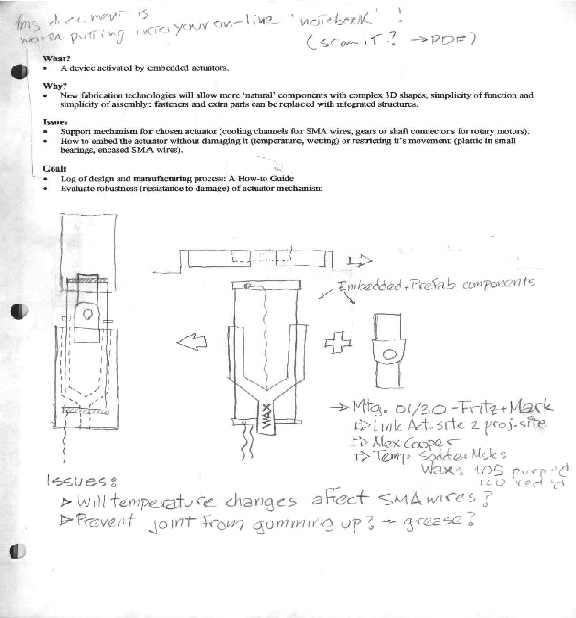 This document is
worth putting into your on-line 'notebook' !
(scan it? → PDF)
What?
• A device activated by embedded actuators.
Why?
• New fabrication technologies will allow more 'natural' components with complex 3D shapes, simplicity of function and
simplicity of assembly: fasteners and extra parts can be replaced with integrated structures.
Issues
• Support mechanism for chosen actuator (cooling channels for SMA wires, gears or shaft connectors for rotary motors).
• How to embed the actuator without damaging it (temperature, wetting) or restricting it's movement (plastic in small
bearings, encased SMA wires).
Goals
• Log of design and manufacturing process: A How-to Guide
• Evaluate robustness (resistance to damage) of actuator mechanism
Embedded + Prefab components
WAX
→ Mtg. 01/20 - Fritz + Mark
Link Act. site 2 proj. site
Alex Cooper
Temp
Waxs 105
120 red
Issues:
Will temperature changes affect SMA wires?
Prevent joint from gumming up? → grease?